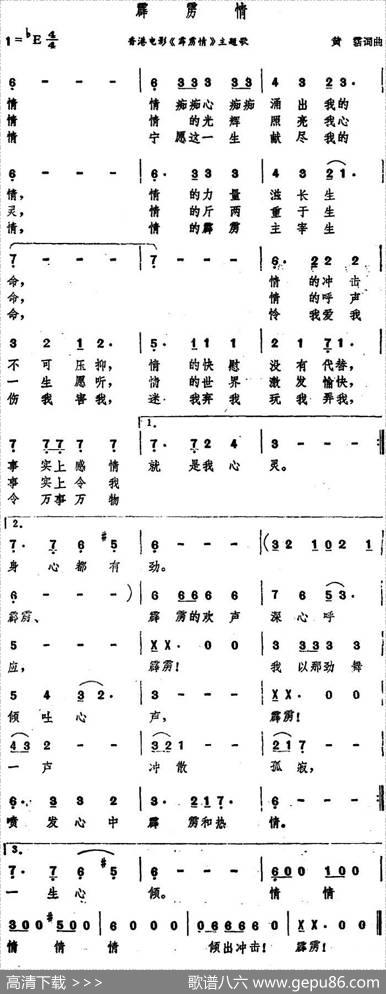 霹雳情
1=♭E 4/4 香港电影《霹雳情》主题歌 黄霑词曲
6 - - - 6· 3 3 3 3 3 4 3 2 3·
情 情 痴痴心 痴痴 涌 出 我的
情 情 的光 辉 照 亮 我心
情 宁 愿这一 生 献 尽 我的
6 - - - 6· 3 3 3 4 3 2 2 1·
情, 情 的力 量 滋 长 生
灵, 情 的斤 两 重 于 生
情, 情 的霹 雳 主 宰 生
7 - - - 7 - - - 6· 2 2 2
命, 情 的冲 击
命, 情 的呼 声
命, 怜 我爱 我
3 2 1 2· 5· 1 1 1 2 1 7 1·
不 可 压 抑, 情 的快 慰 没 有 代替,
一 生 愿 听, 情 的世 界 激 发 愉快,
伤 我 害 我, 迷 我弃 我 玩 我 弄我,
1.
7 7 7 7 7 7· 7 2 4 3 - - -
事 实上 感 情 就 是我 心 灵。
事 实上 令 我
令 万事 万 物
2.
7· 7 6 #5 6 - - - (3 2 1 0 2 1
身 心 都 有 劲。
6 - - -) 6 6 6 6 6 7 6 5 3·
霹雳、 霹 雳的欢 声 深 心 呼
5 - - - X X· 0 0 3 3 3 3 3
应, 霹雳! 我 以那劲 舞
5 4 3 2· 3 - - - X X· 0 0
倾 吐 心 声, 霹雳!
4 3 2 - - 3 2 1 - - 2 1 7 - -
一 声 冲 散 孤 寂,
6· 3 3 2 3· 2 1 7· 6 - - -
喷 发 心 中 霹 雳和 热 情。
3.
7· 7 6 #5 6 - - - 6 0 0 1 0 0
一 生 心 倾。 情 情
3 0 0 #5 0 0 6 0 0 0 0 6 6 6 6 0 X X· 0 0
情 情 情 倾出 冲击! 霹雳!
高清下载 >>> 歌谱八六 www.gepu86.com